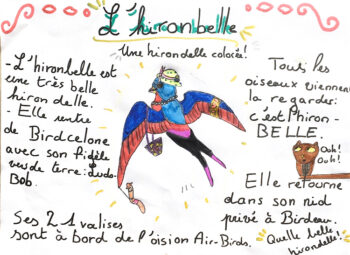 L'hironbelle
Une hirondelle colorée!
- L'hironbelle est
une très belle
hirondelle.
- Elle rentre
de Birdcelone
avec son fidèle
ver de terre: dudu-
Bob.
Ses 21 valises
sont à bord de l'oision Air-Birds.
Tous les
oiseaux viennent
la regarder:
c'est l'hiron-
BELLE.
Ouh!
Ouh!
Elle retourne
dans son nid
privé à Birdeau.
Quelle belle
hirondelle!